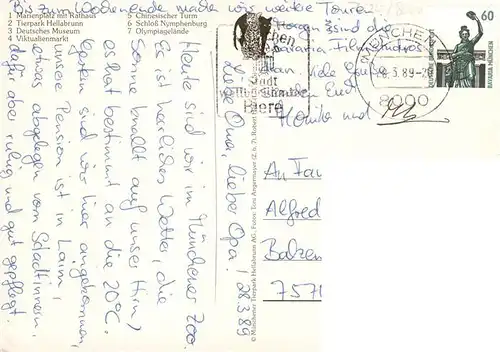 1 Marienplatz mit Rathaus
2 Tierpark Hellabrunn
3 Deutsches Museum
4 Viktualienmarkt
5 Chinesischer Turm
6 Schloß Nymphenburg
7 Olympiagelände
28.3.89
Liebe Oma, lieber Opa!
Heute sind wir im Münchener Zoo.
Es ist herrliches Wetter, die
Sonne knallt auf unser Hirn,
es hat bestimmt an die 20°C.
Gestern sind wir hier angekommen,
unsere Pension ist in Laim,
etwas abgelegen vom Stadtinnern,
dafür aber ruhig und gut gepflegt.
Bis zum Wochenende machen wir weitere Touren
Morgen sind die
Bavaria Filmstudios
dran. Viele Grüße
Euch
Monika und
© Münchener Tierpark Hellabrunn AG, Fotos: Toni Angermayer
MÜNCHEN
.3.89-20
8000
60
Stadt
Tiere
An Fam
Alfred
Balzen
757